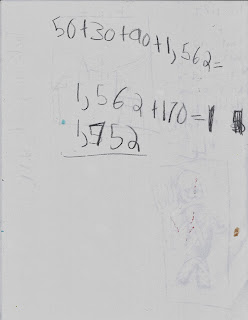 50+30+90+1,562=
1,562+170=1
1,752